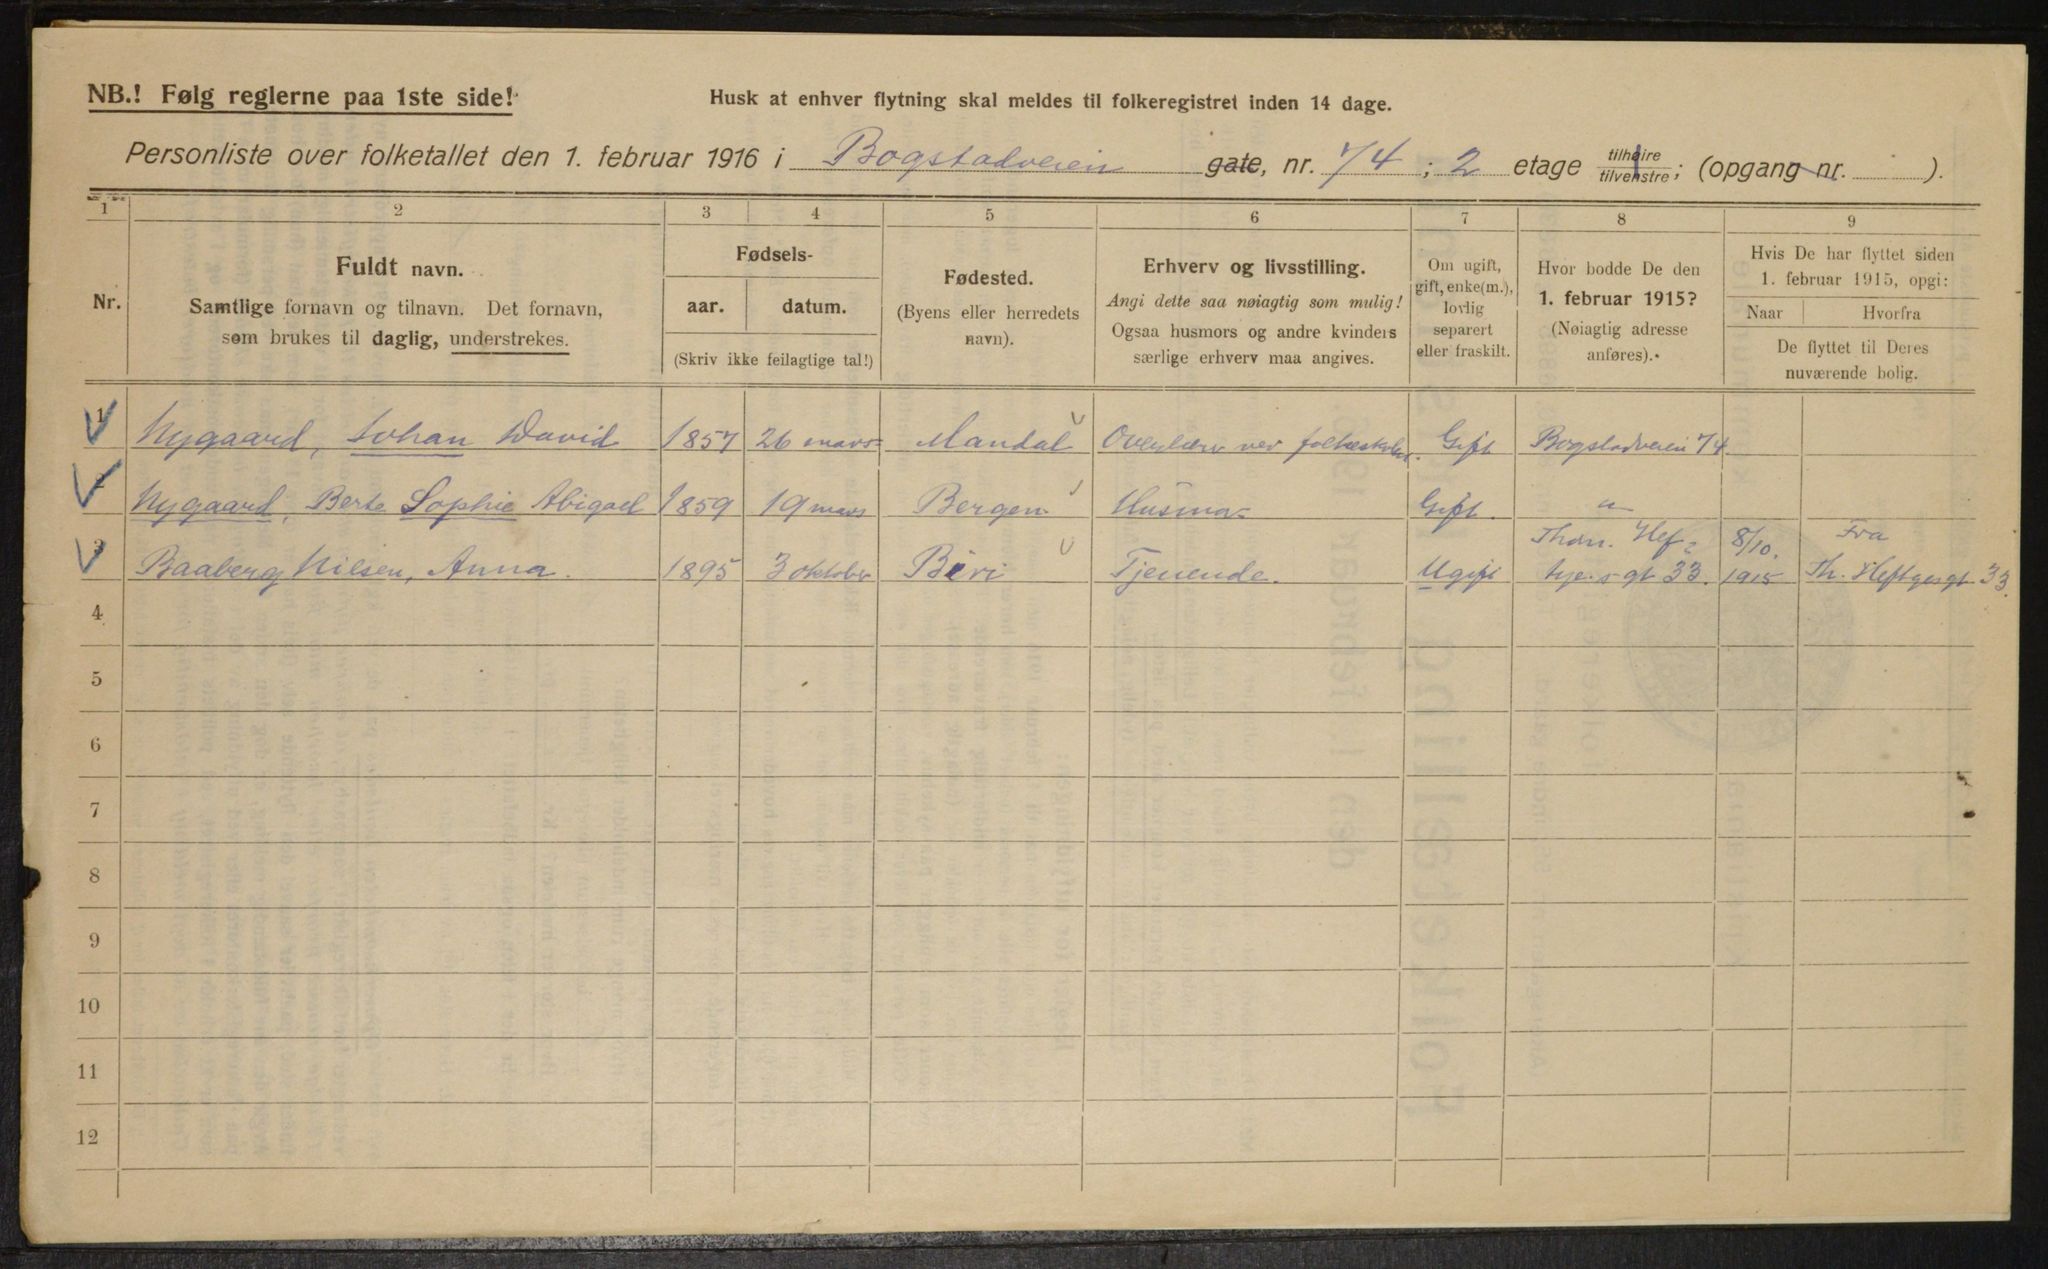 NB.! Følg reglerne paa 1ste side!
Husk at enhver flytning skal meldes til folkeregistret inden 14 dage.
Personliste over folketallet den 1. februar 1916 i Bogstadveien gate, nr. 74 ; 2 etage tilhøire tilvenstre; (opgang nr. ).
1 2 3 4 5 6 7 8 9
Nr.
Fuldt navn.
Samtlige fornavn og tilnavn. Det fornavn,
som brukes til daglig, understrekes.
Fødsels-
aar. datum.
(Skriv ikke feilagtige tal!)
Fødested.
(Byens eller herredets
navn).
Erhverv og livsstilling.
Angi dette saa nøiagtig som mulig!
Ogsaa husmors og andre kvinders
særlige erhverv maa angives.
Om ugift,
gift, enke(m.),
lovlig
separert
eller fraskilt.
Hvor bodde De den
1. februar 1915?
(Nøiagtig adresse
anføres).
Hvis De har flyttet siden
1. februar 1915, opgi:
Naar Hvorfra
De flyttet til Deres
nuværende bolig.
1 Nygaard, Johan David 1857 26 mars Mandal Overlærer ved folkeskolen. Gift Bogstadveien 74.
2 Nygaard, Berte Sophie Abigael 1859 19 mars Bergen Husmor Gift. "
3 Baaberg Nilsen, Anna. 1895 3 oktober Biri Tjenende. Ugift Thom. Hef= tye.s gt 33. 8/10. 1915 Fra Th. Heftyesgt 33.
4
5
6
7
8
9
10
11
12